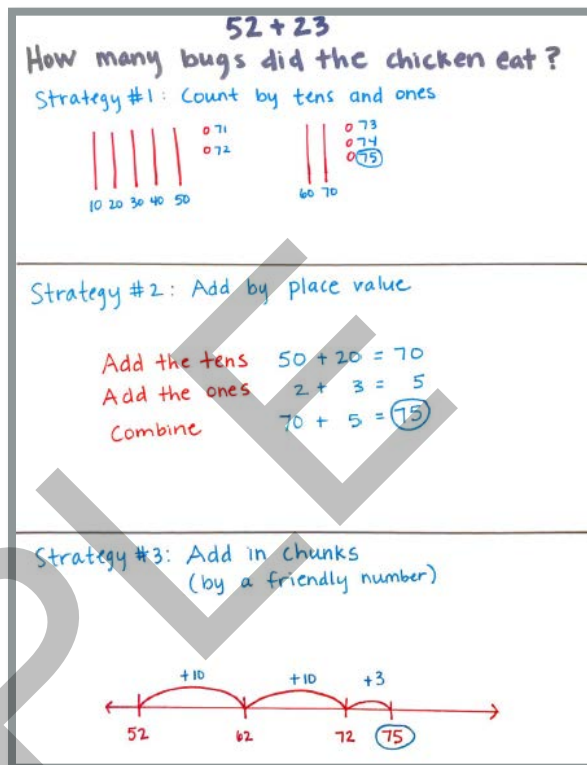 52 + 23
How many bugs did the chicken eat?
Strategy #1: Count by tens and ones
71
72
10 20 30 40 50
73
74
75
60 70
Strategy #2: Add by place value
Add the tens 50 + 20 = 70
Add the ones 2 + 3 = 5
Combine 70 + 5 = 75
Strategy #3: Add in chunks
(by a friendly number)
+10 +10 +3
52 62 72 75
PLE